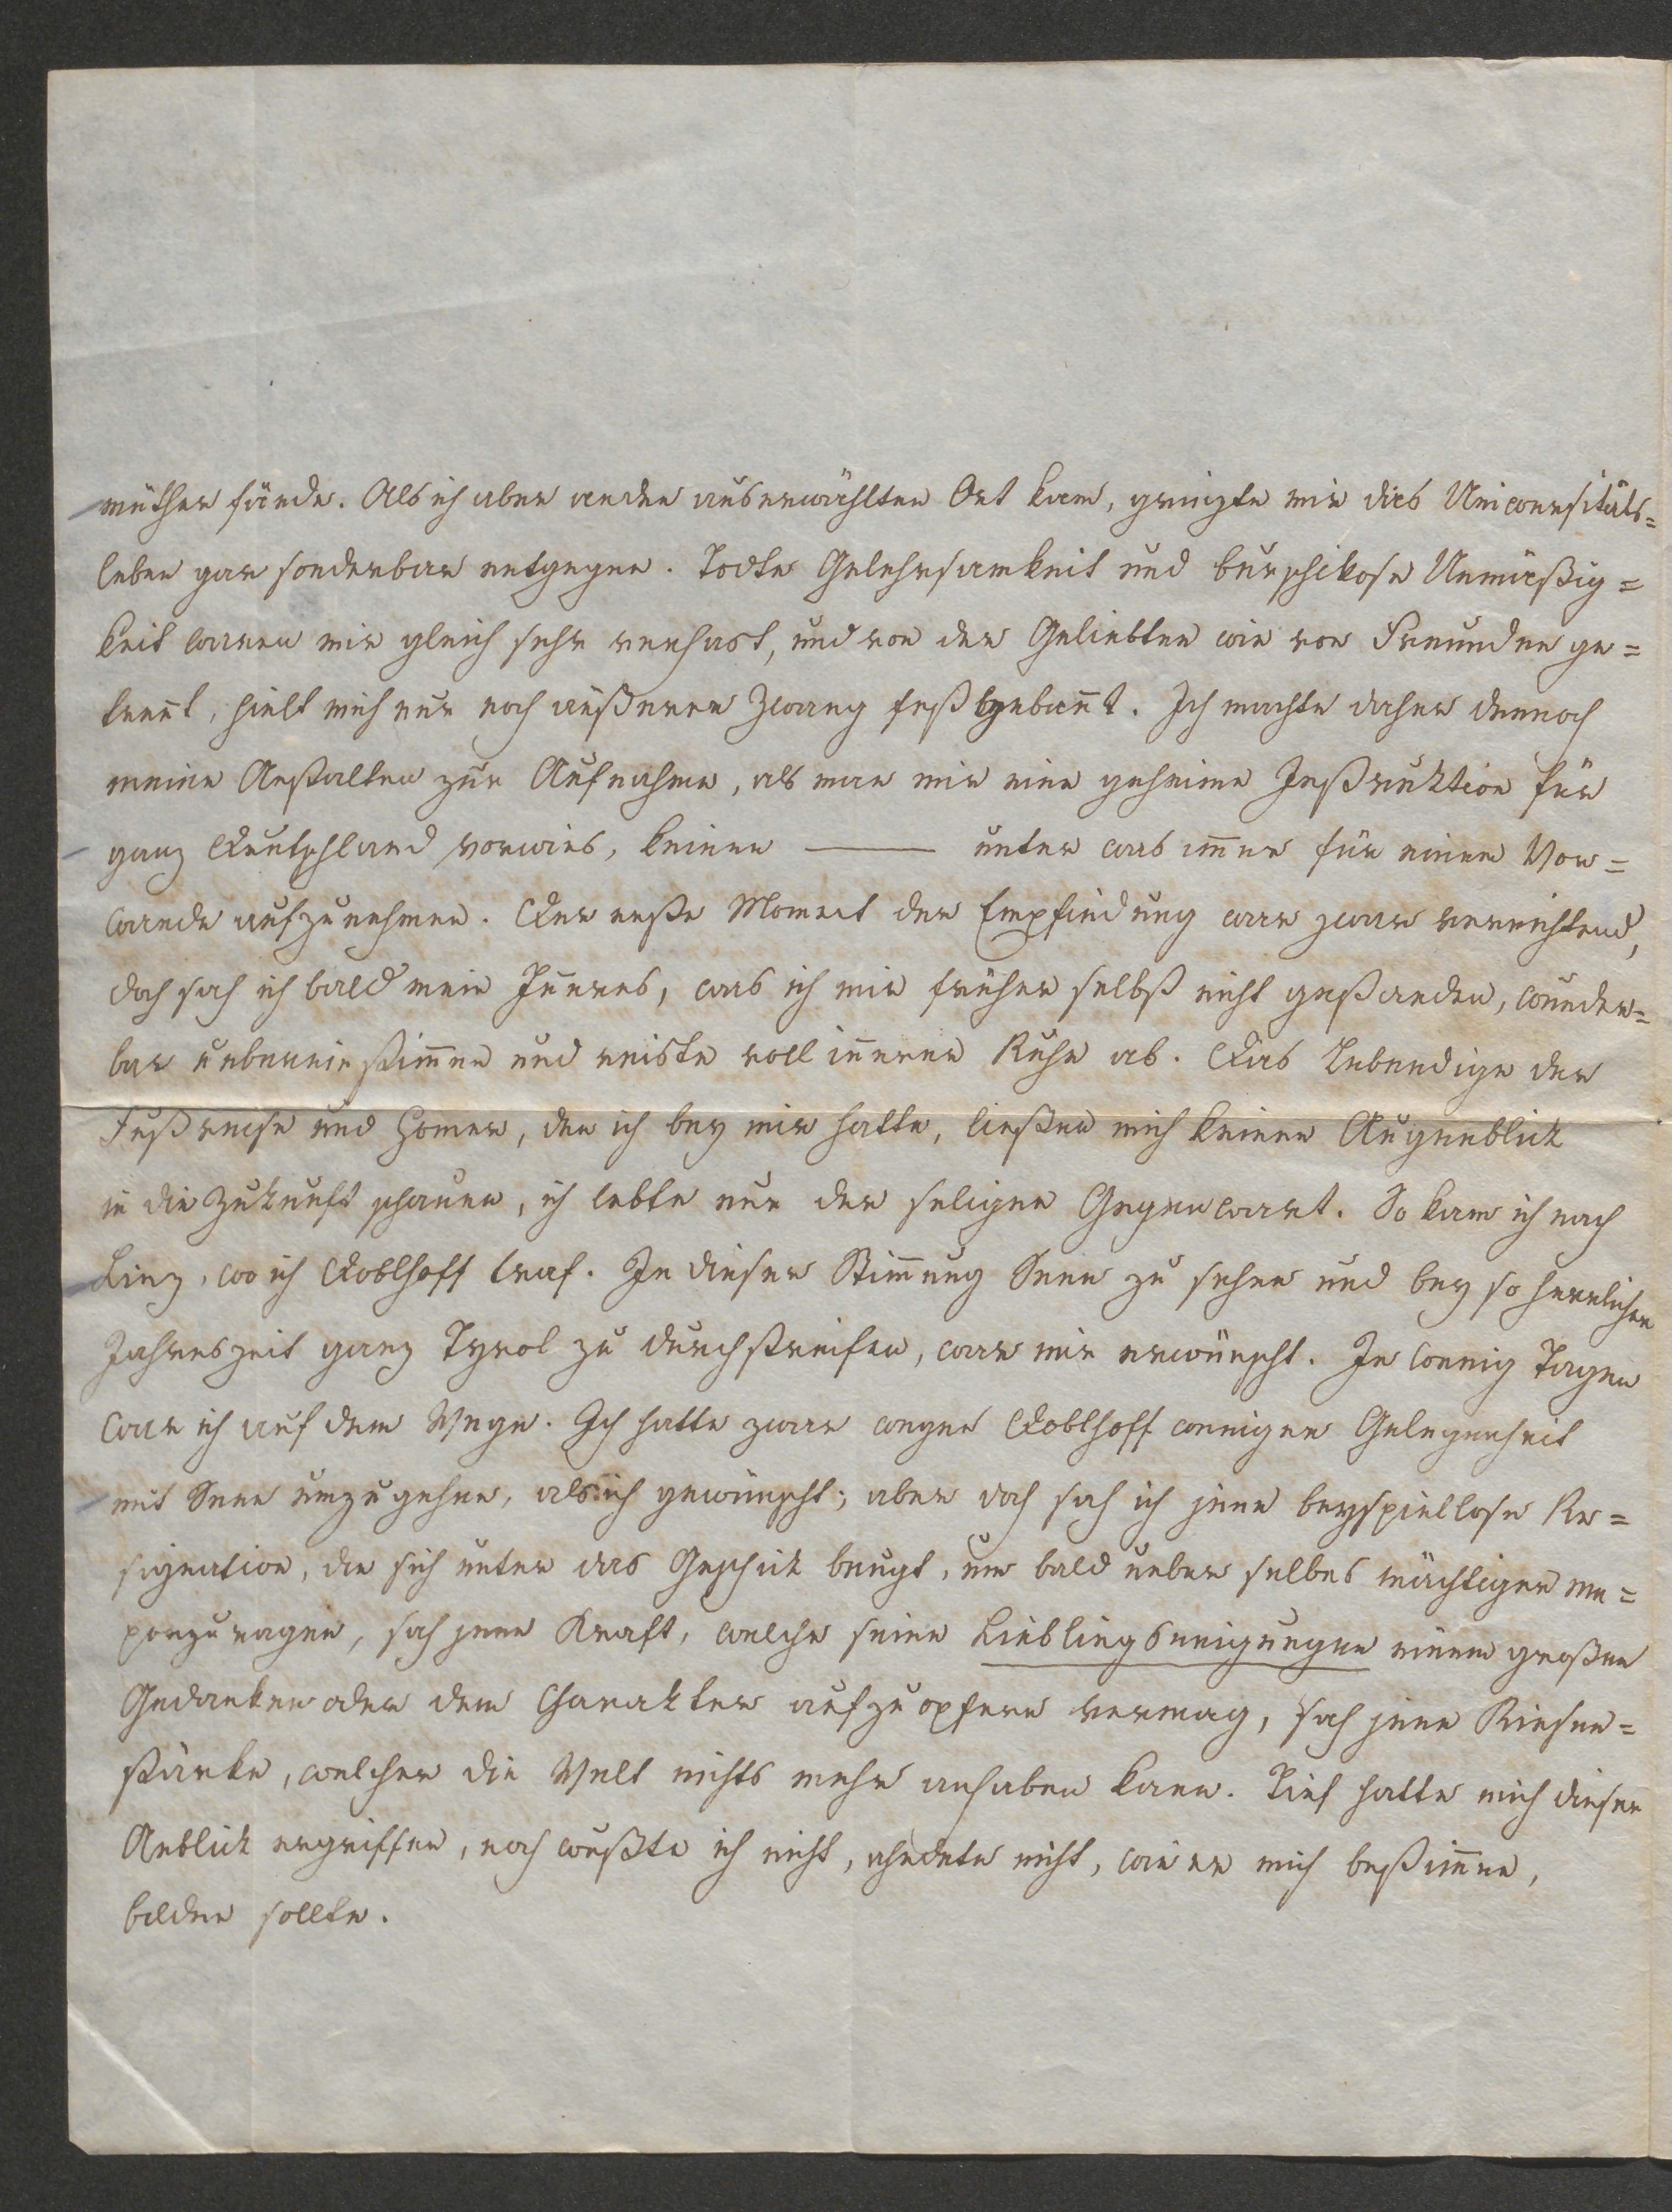 müther fände. Als ich aber an den auserwählten Ort kam, grinzte mir dies Universitäts=
leben gar sonderbar entgegen. Todte Gelehrsamkeit und burschikose Unmäßig=
keit waren mir gleich sehr verhast, und von der Geliebten wie von Freunden ge=
trent, hielt mich nur noch äußerer Zwang festgebant. Ich machte daher dennoch
meine Anstalten zur Aufnahme, als man mir eine geheime Instruktion für
ganz Deutschland vorwies, keinen ——— unter was imer für einem Vor=
wande aufzunehmen. Der erste Moment der Empfindung war zwar vernichtend,
doch sah ich bald mein Inneres, was ich mir früher selbst nicht gestanden, wunder=
bar uebereinstimen und reiste voll innerer Ruhe ab. Das Lebendige der
Fußreise und Homer, den ich bey mir hatte, ließen mich keinen Augenblick
in die Zukunft schauen, ich lebte nur der seligen Gegenwart. So kam ich nach
Linz, wo ich Doblhoff traf. In dieser Stimung Senn zu sehen und bey so herrlicher
Jahreszeit ganz Tyrol zu durchstreifen, war mir erwünscht. In wenig Tagen
war ich auf dem Wege. Ich hatte zwar wegen Doblhoff weniger Gelegenheit
mit Senn umzugehen, als ich gewünscht; aber doch sah ich jene beyspiellose Re=
signation, die sich unter das Geschick beugt, um bald ueber selbes mächtiger em=
porzuragen, sah jene Kraft, welche seine Lieblingsneigungen einem großen
Gedanken oder dem Charakter aufzuopfern vermag, sah jene Riesen=
stärke, welcher die Welt nichts mehr anhaben kann. Tief hatte mich dieser
Anblick ergriffen, noch wußte ich nicht, ahndete nicht, wie er mich bestimen,
bilden sollte.